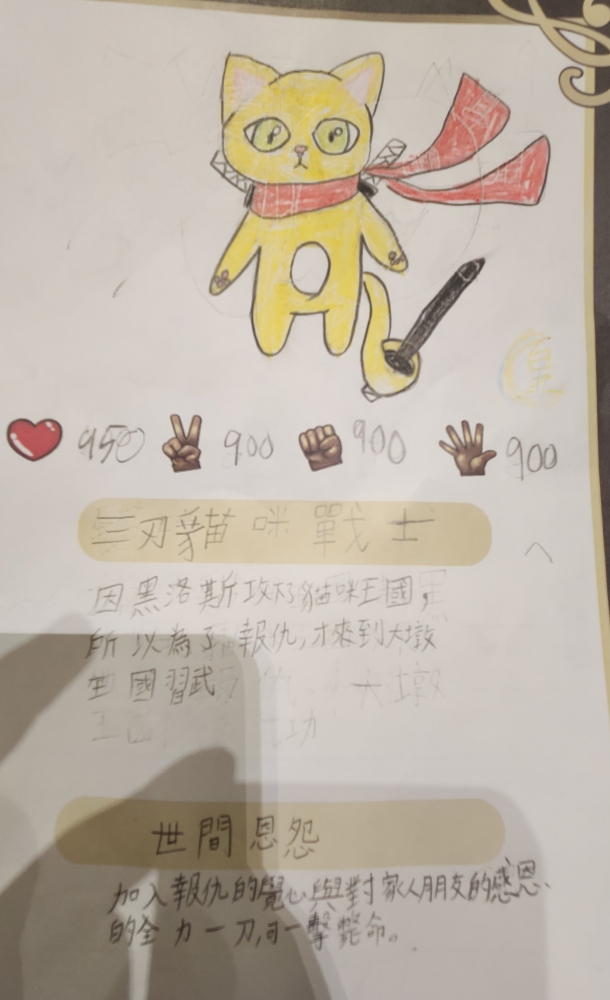 950 900 900 900
三刃貓咪戰士
因黑洛斯攻下貓咪王國,
所以為了報仇,才來到大墩
王國習武
世間恩怨
加入報仇的覺心與對家人朋友的感恩、
的全力一刀,可一擊斃命。